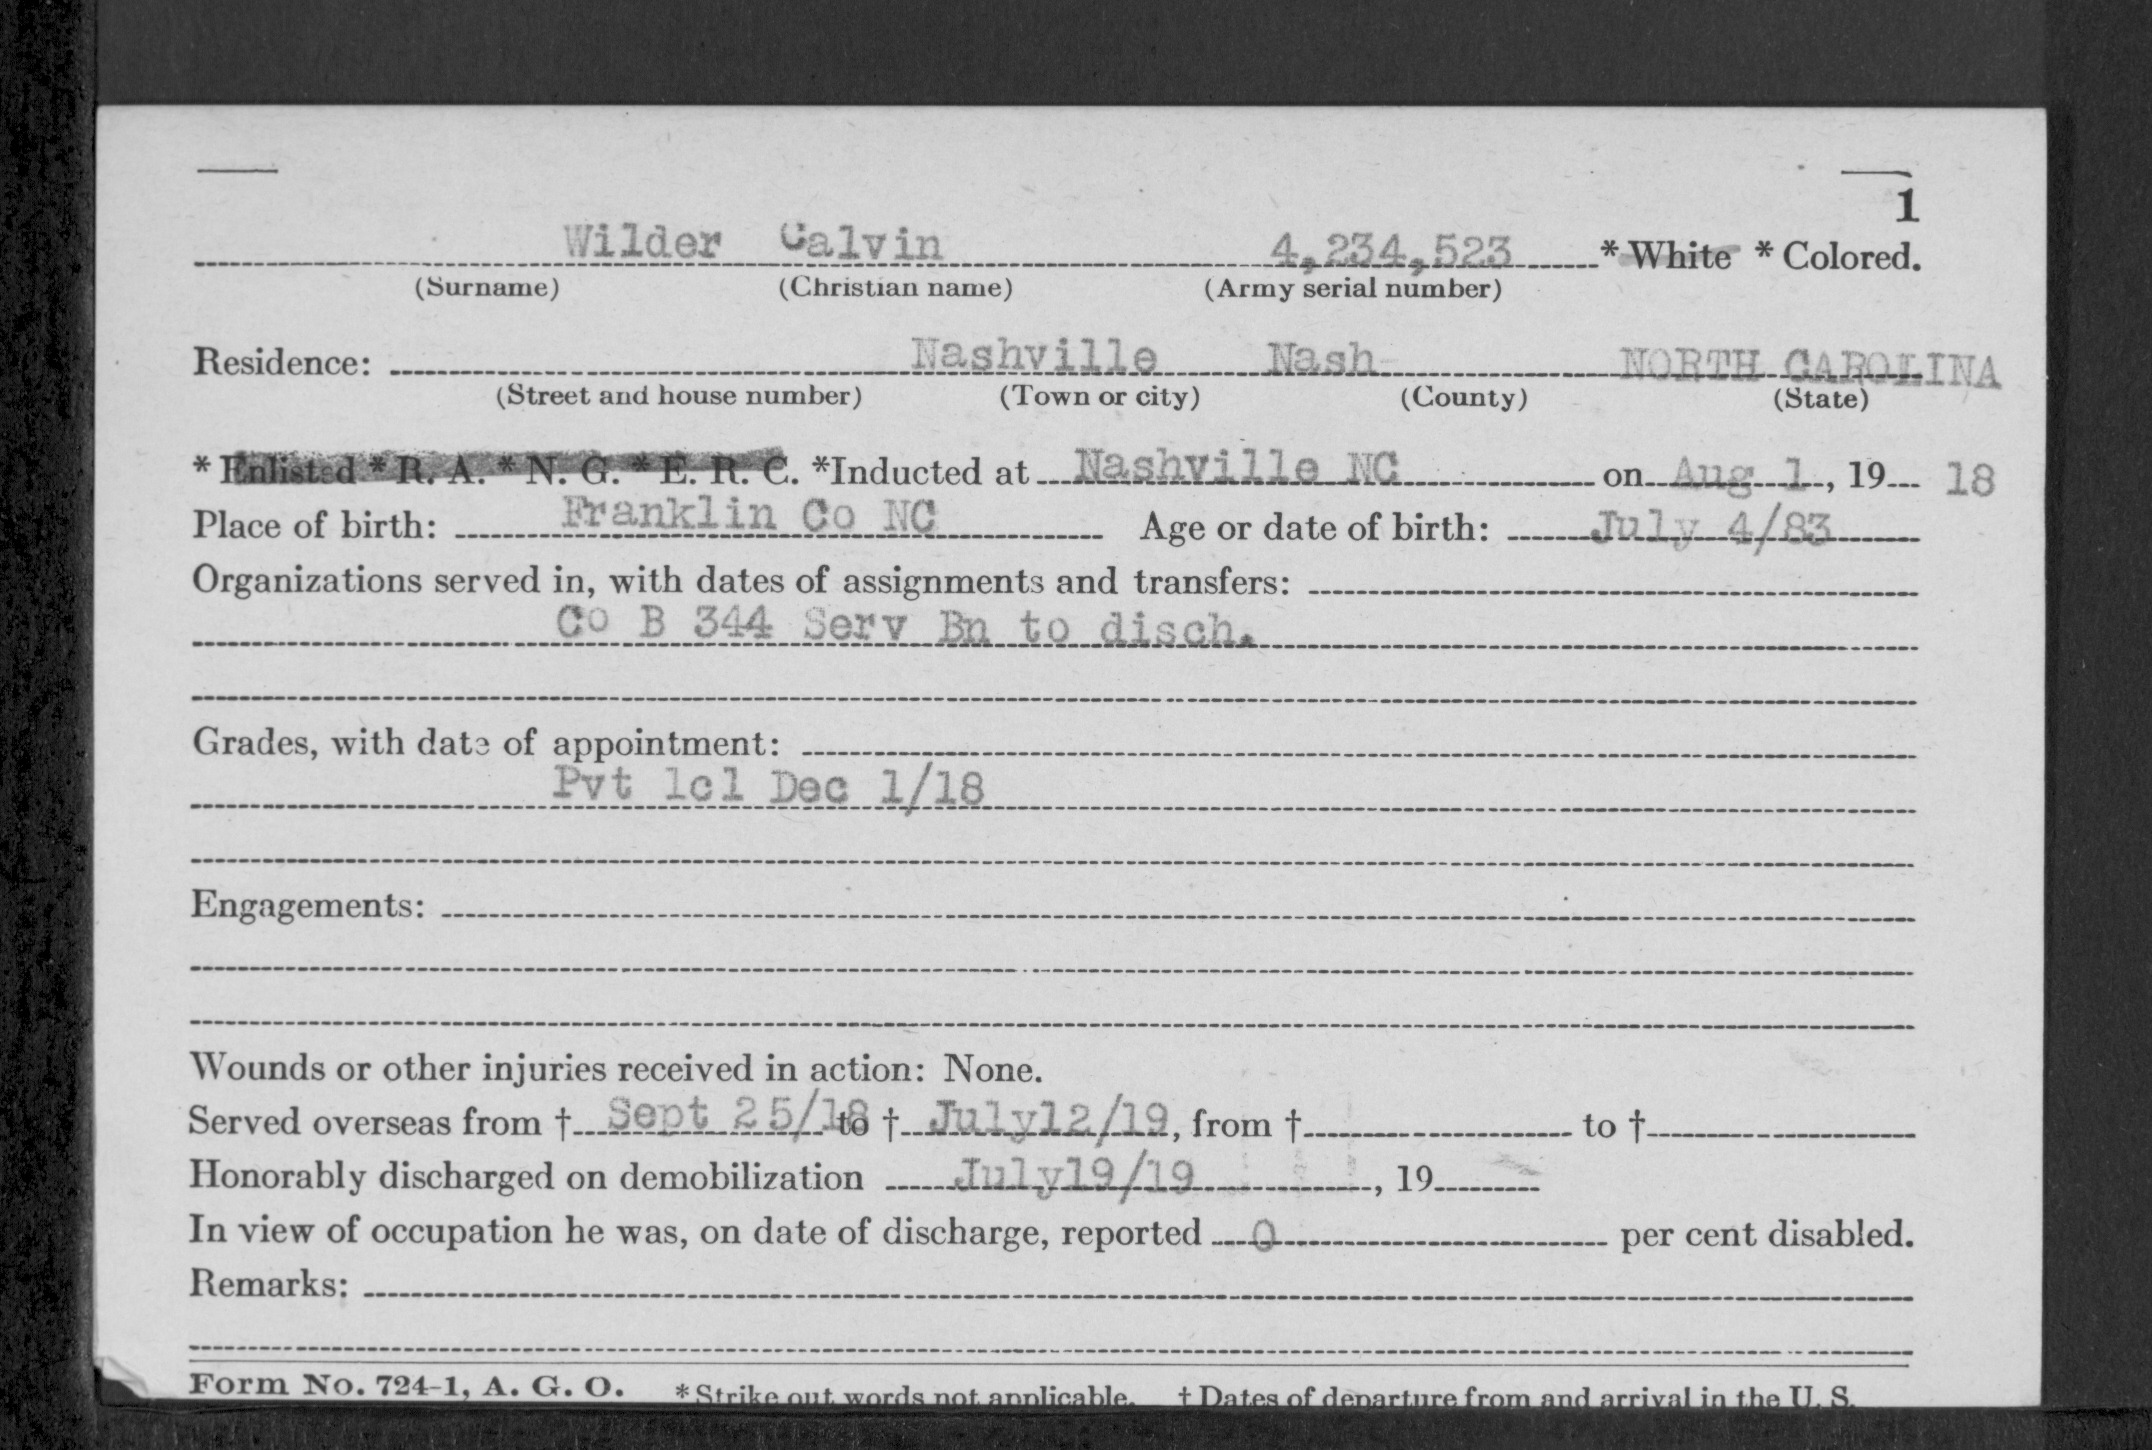 1
Wilder Calvin 4,234,523 * White * Colored.
(Surname) (Christian name) (Army serial number)
Residence: Nashville Nash NORTH CAROLINA
(Street and house number) (Town or city) (County) (State)
* Enlisted * R. A. * N. G. * E. R. C. *Inducted at Nashville NC on Aug 1, 19 18
Place of birth: Franklin Co NC Age or date of birth: July 4/83
Organizations served in, with dates of assignments and transfers:
Co B 344 Serv Bn to disch.
Grades, with date of appointment:
Pvt 1cl Dec 1/18
Engagements:
Wounds or other injuries received in action: None.
Served overseas from † Sept 25/18 to † July12/19, from † to †
Honorably discharged on demobilization July19/19, 19
In view of occupation he was, on date of discharge, reported 0 per cent disabled.
Remarks:
Form No. 724-1, A. G. O. * Strike out words not applicable. † Dates of departure from and arrival in the U. S.